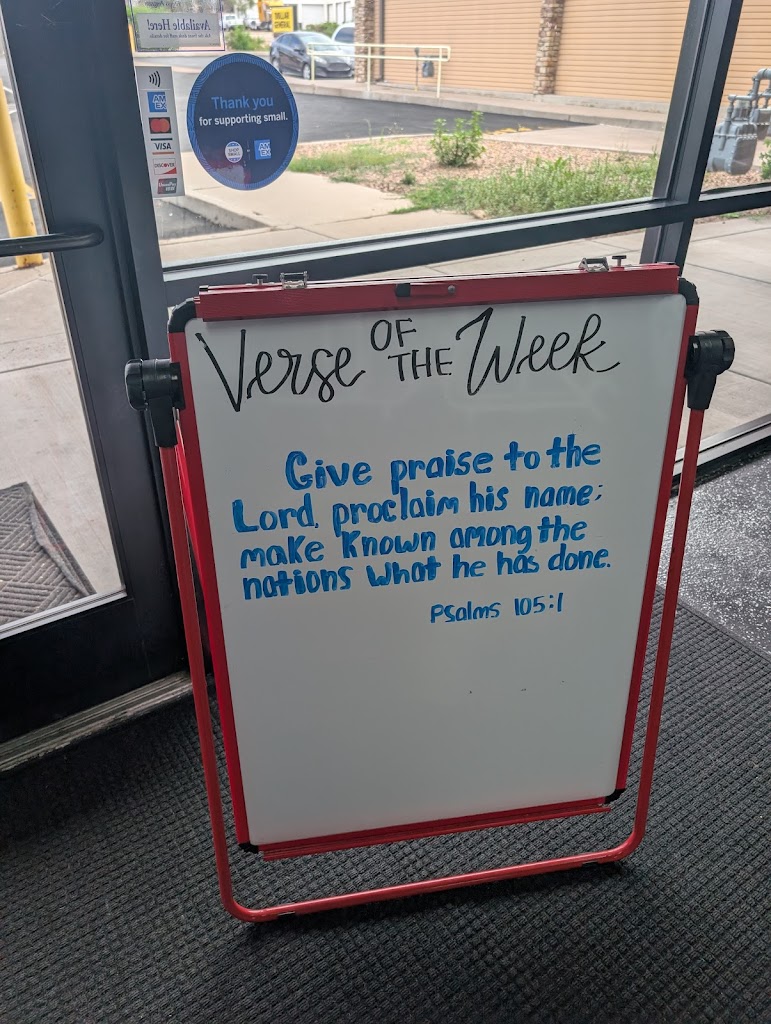 Available Here!
DOLLAR
GENERAL
AM
EX
VISA
DISCOVER
UnionPay
Thank you
for supporting small.
SHOP
SMALL
AM
EX
Verse OF THE Week
Give praise to the
Lord, proclaim his name;
make known among the
nations what he has done.
Psalms 105:1